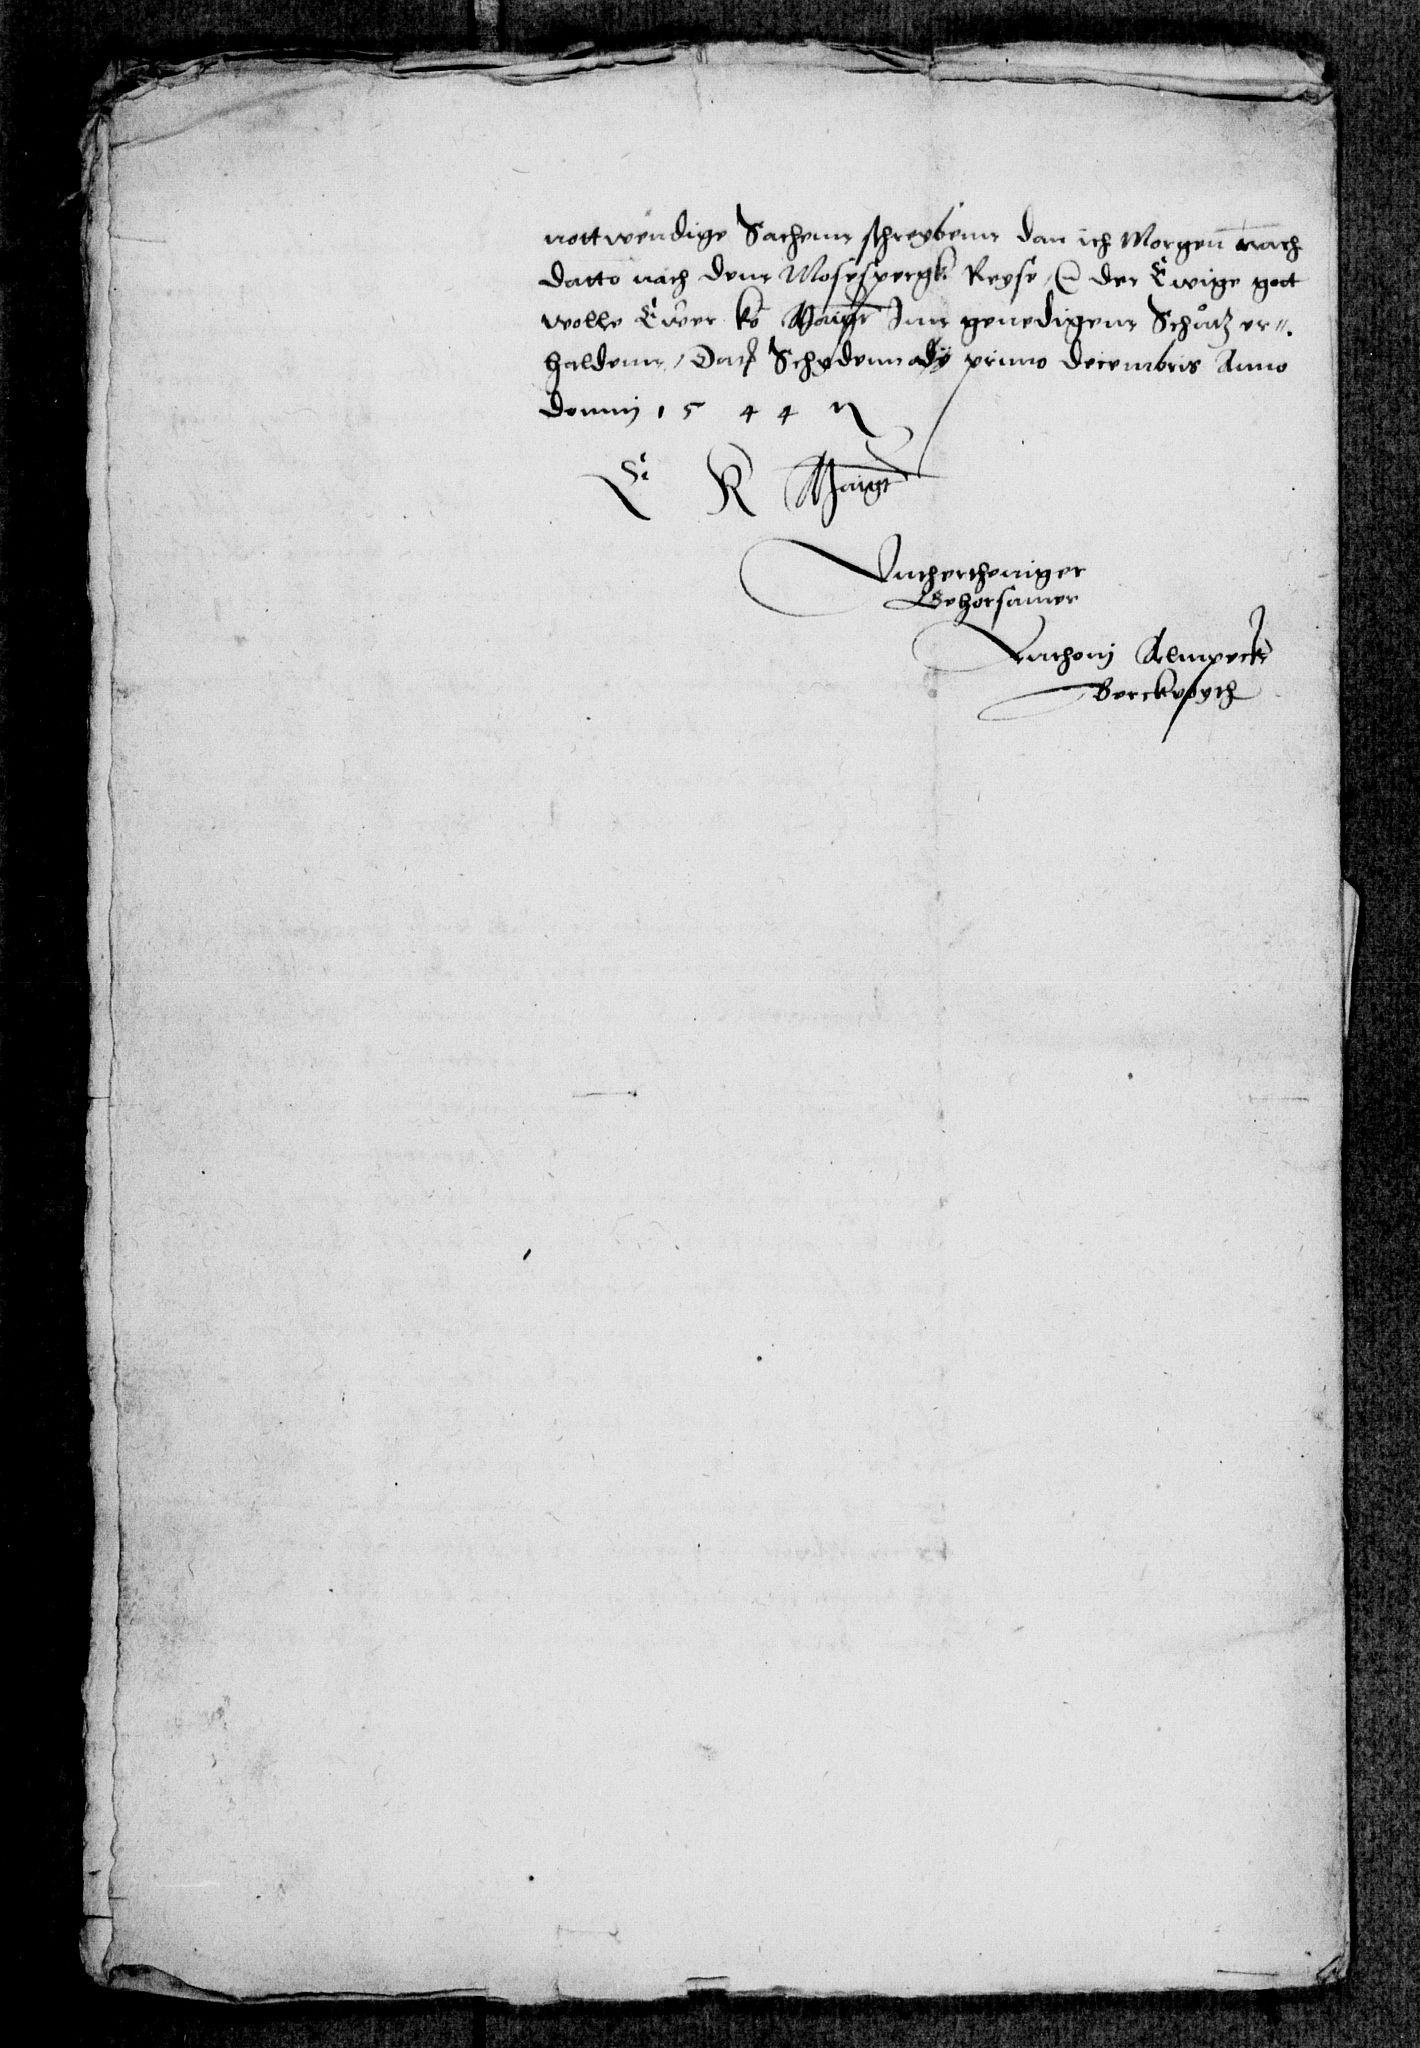 nottwendige Sachenn schreybenn dan ich Morgen nach
datto nach denn Mosespergk Reyse, der Ewige gott
wolle Ewer ko Maigt Inn genedigenn Schutz er=
haldenn, Schedenn ady primo decembris Anno
domnj 1544
E K Maigt
Vnthertheniger
Gehorsamer
Anthonj
Berckvoyth